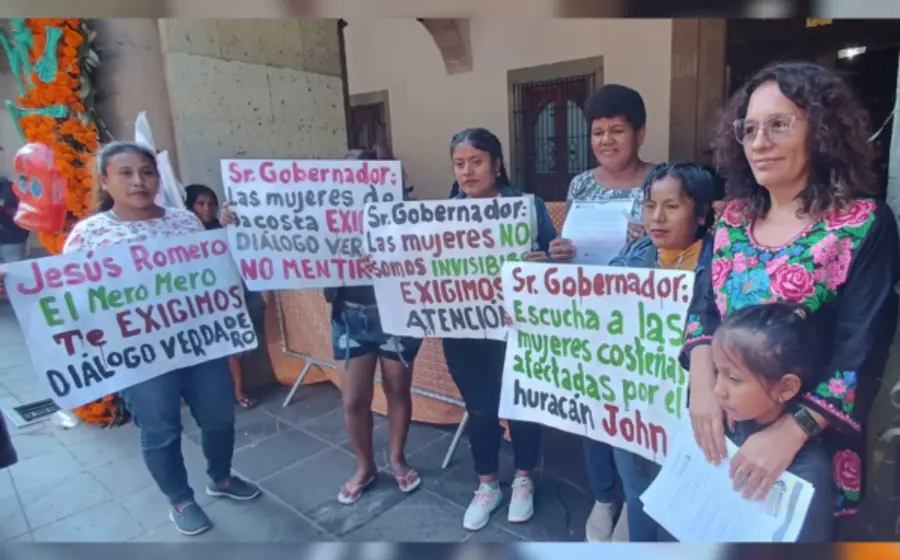 Jesús Romero
El Mero Mero
Te EXIGIMOS
DIÁLOGO VERDADERO
Sr. Gobernador:
Las mujeres de
la costa
DIÁLOGO
NO
Sr. Gobernador:
Las mujeres NO
somos
EXIGIMOS
ATENCIÓN
Sr. Gobernador:
Escucha a las
mujeres costeñas
afectadas por el
huracán John